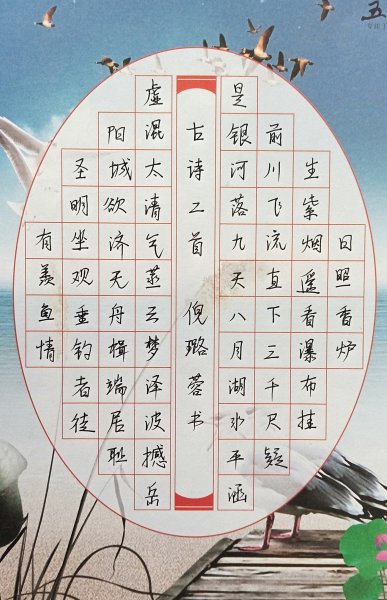 五
日照香炉
生紫烟遥看瀑布挂
前川飞流直下三千尺疑
是银河落九天八月湖水平涵
古诗二首 倪璐蓉书
虚混太清气蒸云梦泽波撼岳
阳城欲济无舟楫端居耻
圣明坐观垂钓者徒
有羡鱼情